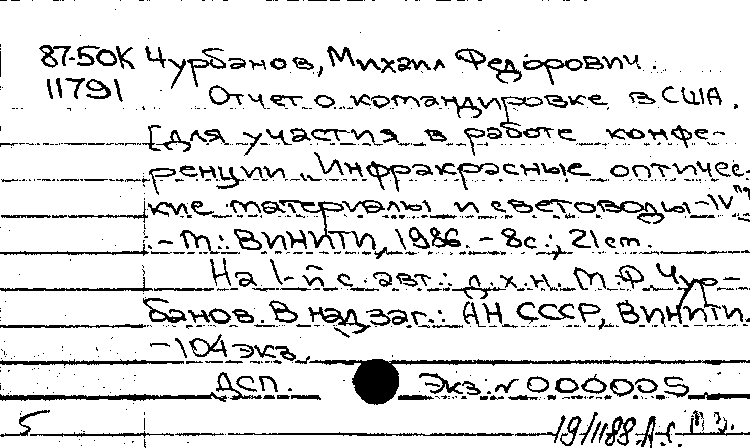 87-50К Чурбанов, Михаил Федорович.
11791 Отчет о командировке в США.
[для участия в работе конфе-
ренции „Инфракрасные оптичес-
кие материалы и световоды-IV"]
.- М.: ВИНИТИ, 1986. - 8с.; 21см.
На 1-й с. авт.: д.х.н. М.Ф. Чур-
банов. В надзаг.: АН СССР, ВИНИТИ.
-104экз.
ДСП. Экз. № 000005
5 19/II88